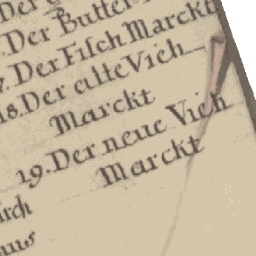 Der
.Der Butter Marckt
7. Der Fisch Marckt
18. Der alte Vieh
Marckt
19. Der neue Vieh
Marckt